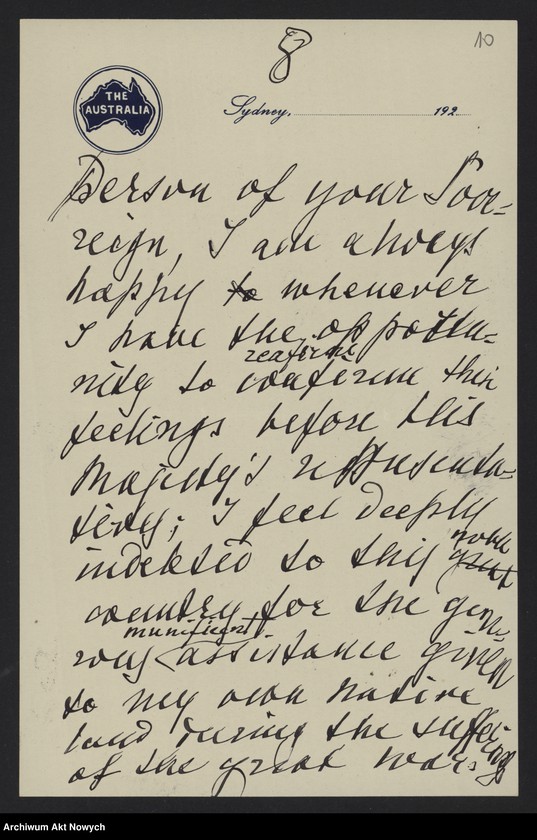 8
10
THE
AUSTRALIA
Sydney, 192
Person of your Sov=
reign, I am always
happy to whenever
I have the opportu=
reafirm
nity to conferm this
feelings before His
Majesty's representa=
tives; I feel deeply
noble
indebted to this great
country for the gene=
munificent
rous assistance given
to my own native
land during the sufferings
of the great war.
Archiwum Akt Nowych